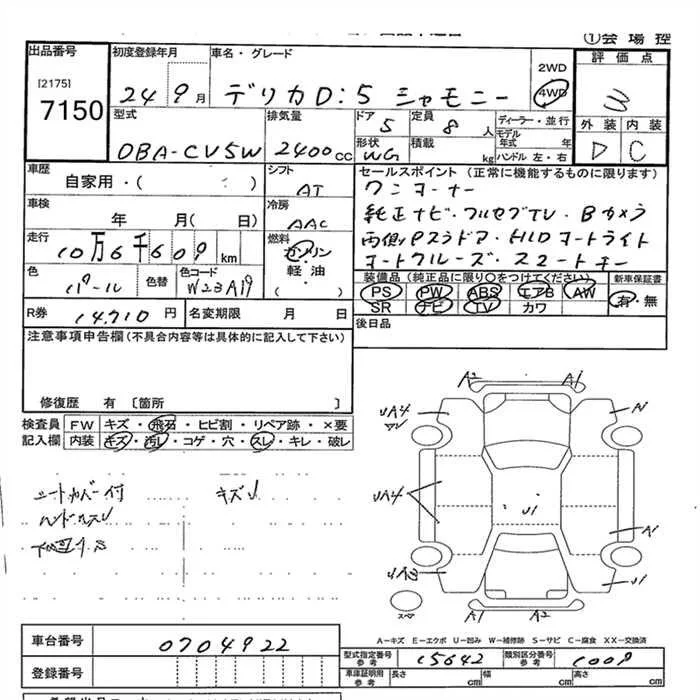 ①会場控
出品番号
[2175]
7150
初度登録年月
24 9月
車名・グレード
デリカD:5 シャモニー
2WD
4WD
評価点
3
外装 内装
D C
型式
DBA-CV5W
排気量
2400cc
ドア
5
定員
8人
ディーラー・並行
モデル年式 年
ハンドル 左・右
形状
WG
積載
kg
車歴
自家用・( )
シフト
AT
セールスポイント(正常に機能するものに限ります)
ワンオーナー
純正ナビ・フルセグTV・Bカメラ
両側Pスラドア・HIDオートライト
オートクルーズ・スマートキー
車検
年 月( 日)
冷房
AAC
走行
10万6千609km
燃料
ガソリン
軽油
( )
色
パール
色替
色コード
W23A19
装備品(純正品に限り○をつけてください)
PS PW ABS エアB AW
SR ナビ TV カワ
新車保証書
有・無
R券
14,710円
名変期限 月 日
後日品
注意事項申告欄(不具合内容等は具体的に記入して下さい)
修復歴 有〔箇所 〕
検査員記入欄
FW キズ・飛石・ヒビ割・リペア跡・×要
内装 キズ・汚レ・コゲ・穴・スレ・キレ・破レ
シートカバー付
キズU
ハンドルスレ
A2 A1
UA4
A1
UA4
U1
A1
UA3
U1
スペア
A1 A2
A－キズ E－エクボ U－凹み W－補修跡 S－サビ C－腐食 XX－交換済
車台番号
0704922
登録番号
型式指定番号 参考
15642
類別区分番号 参考
1009
車庫証明用 参考
長さ cm 幅 cm 高さ cm